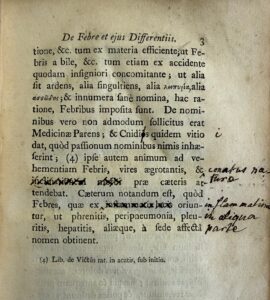 De Febre et ejus Differentiis. 3
tione, &c. tum ex materia efficiente, ut
Febris a bile, &c. tum etiam ex accidente
quodam insigniori concomitante; ut alia
sit ardens, alia singultiens, alia
&c innumera sane nomina, hac ra-
tione, Febribus imposita sunt. De nomi-
nibus vero non admodum sollicitus erat
Medicinæ Parens; & Cnidiis quidem vitio
dat, quòd passionum nominibus nimis inhæ-
serint; (4) ipse autem animum ad ve-
hementiam Febris, vires ægrotantis, &
præ cæteris at-
tendebat. Cæterum notandum est, quòd
Febres, quæ ex oriun-
tur, ut phrenitis, peripneumonia, pleu-
ritis, hepatitis, aliæque, à sede affectâ
nomen obtinent.
(4) Lib. de Victûs rat. in acutis, sub initio.
i
conatus na
tura
inflammatione
in aliqua
parte